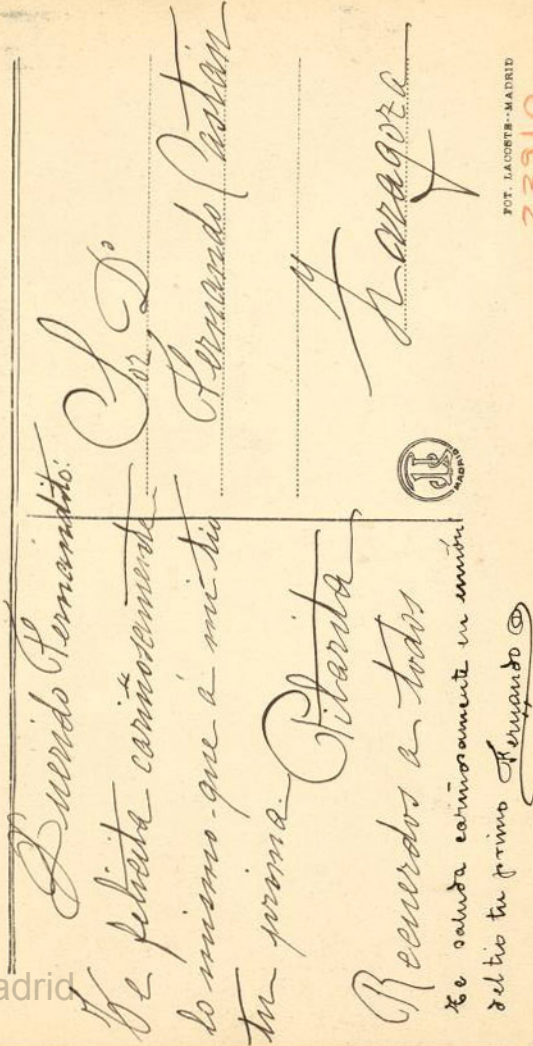 Querido Fernandito:
Te felicita cariñosemente
lo mismo que á mi tio
tu prima Pilarita
Recuerdos a todos
Te saluda cariñosamente en unión
del tio tu primo Fernando
Sor Dº
Fernando Castán
Zaragoza
MADRID
FOT. LACOSTE--MADRID
adrid